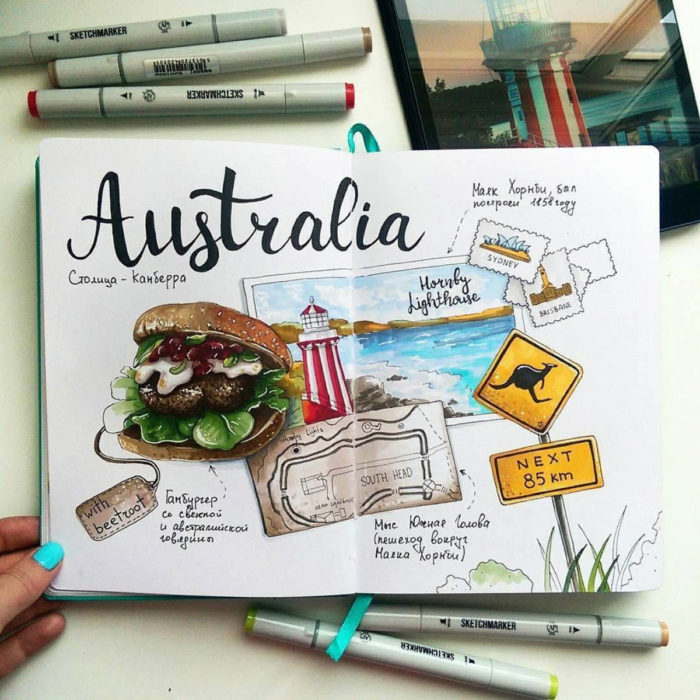 SKETCHMARKER
SKETCHMARKER
Australia
Столица - Канберра
Маяк Хорнби, был
построен 1858 году
SYDNEY
BRISBANE
Hornby
Lighthouse
NEXT
85 km
with
beetroot
Гамбургер
со свеклой
и австралийской
говядины
SOUTH HEAD
Мыс Южная Голова
(пешеход вокруг
Маяка Хорнби)
SKETCHMARKER
SKETCHMARKER